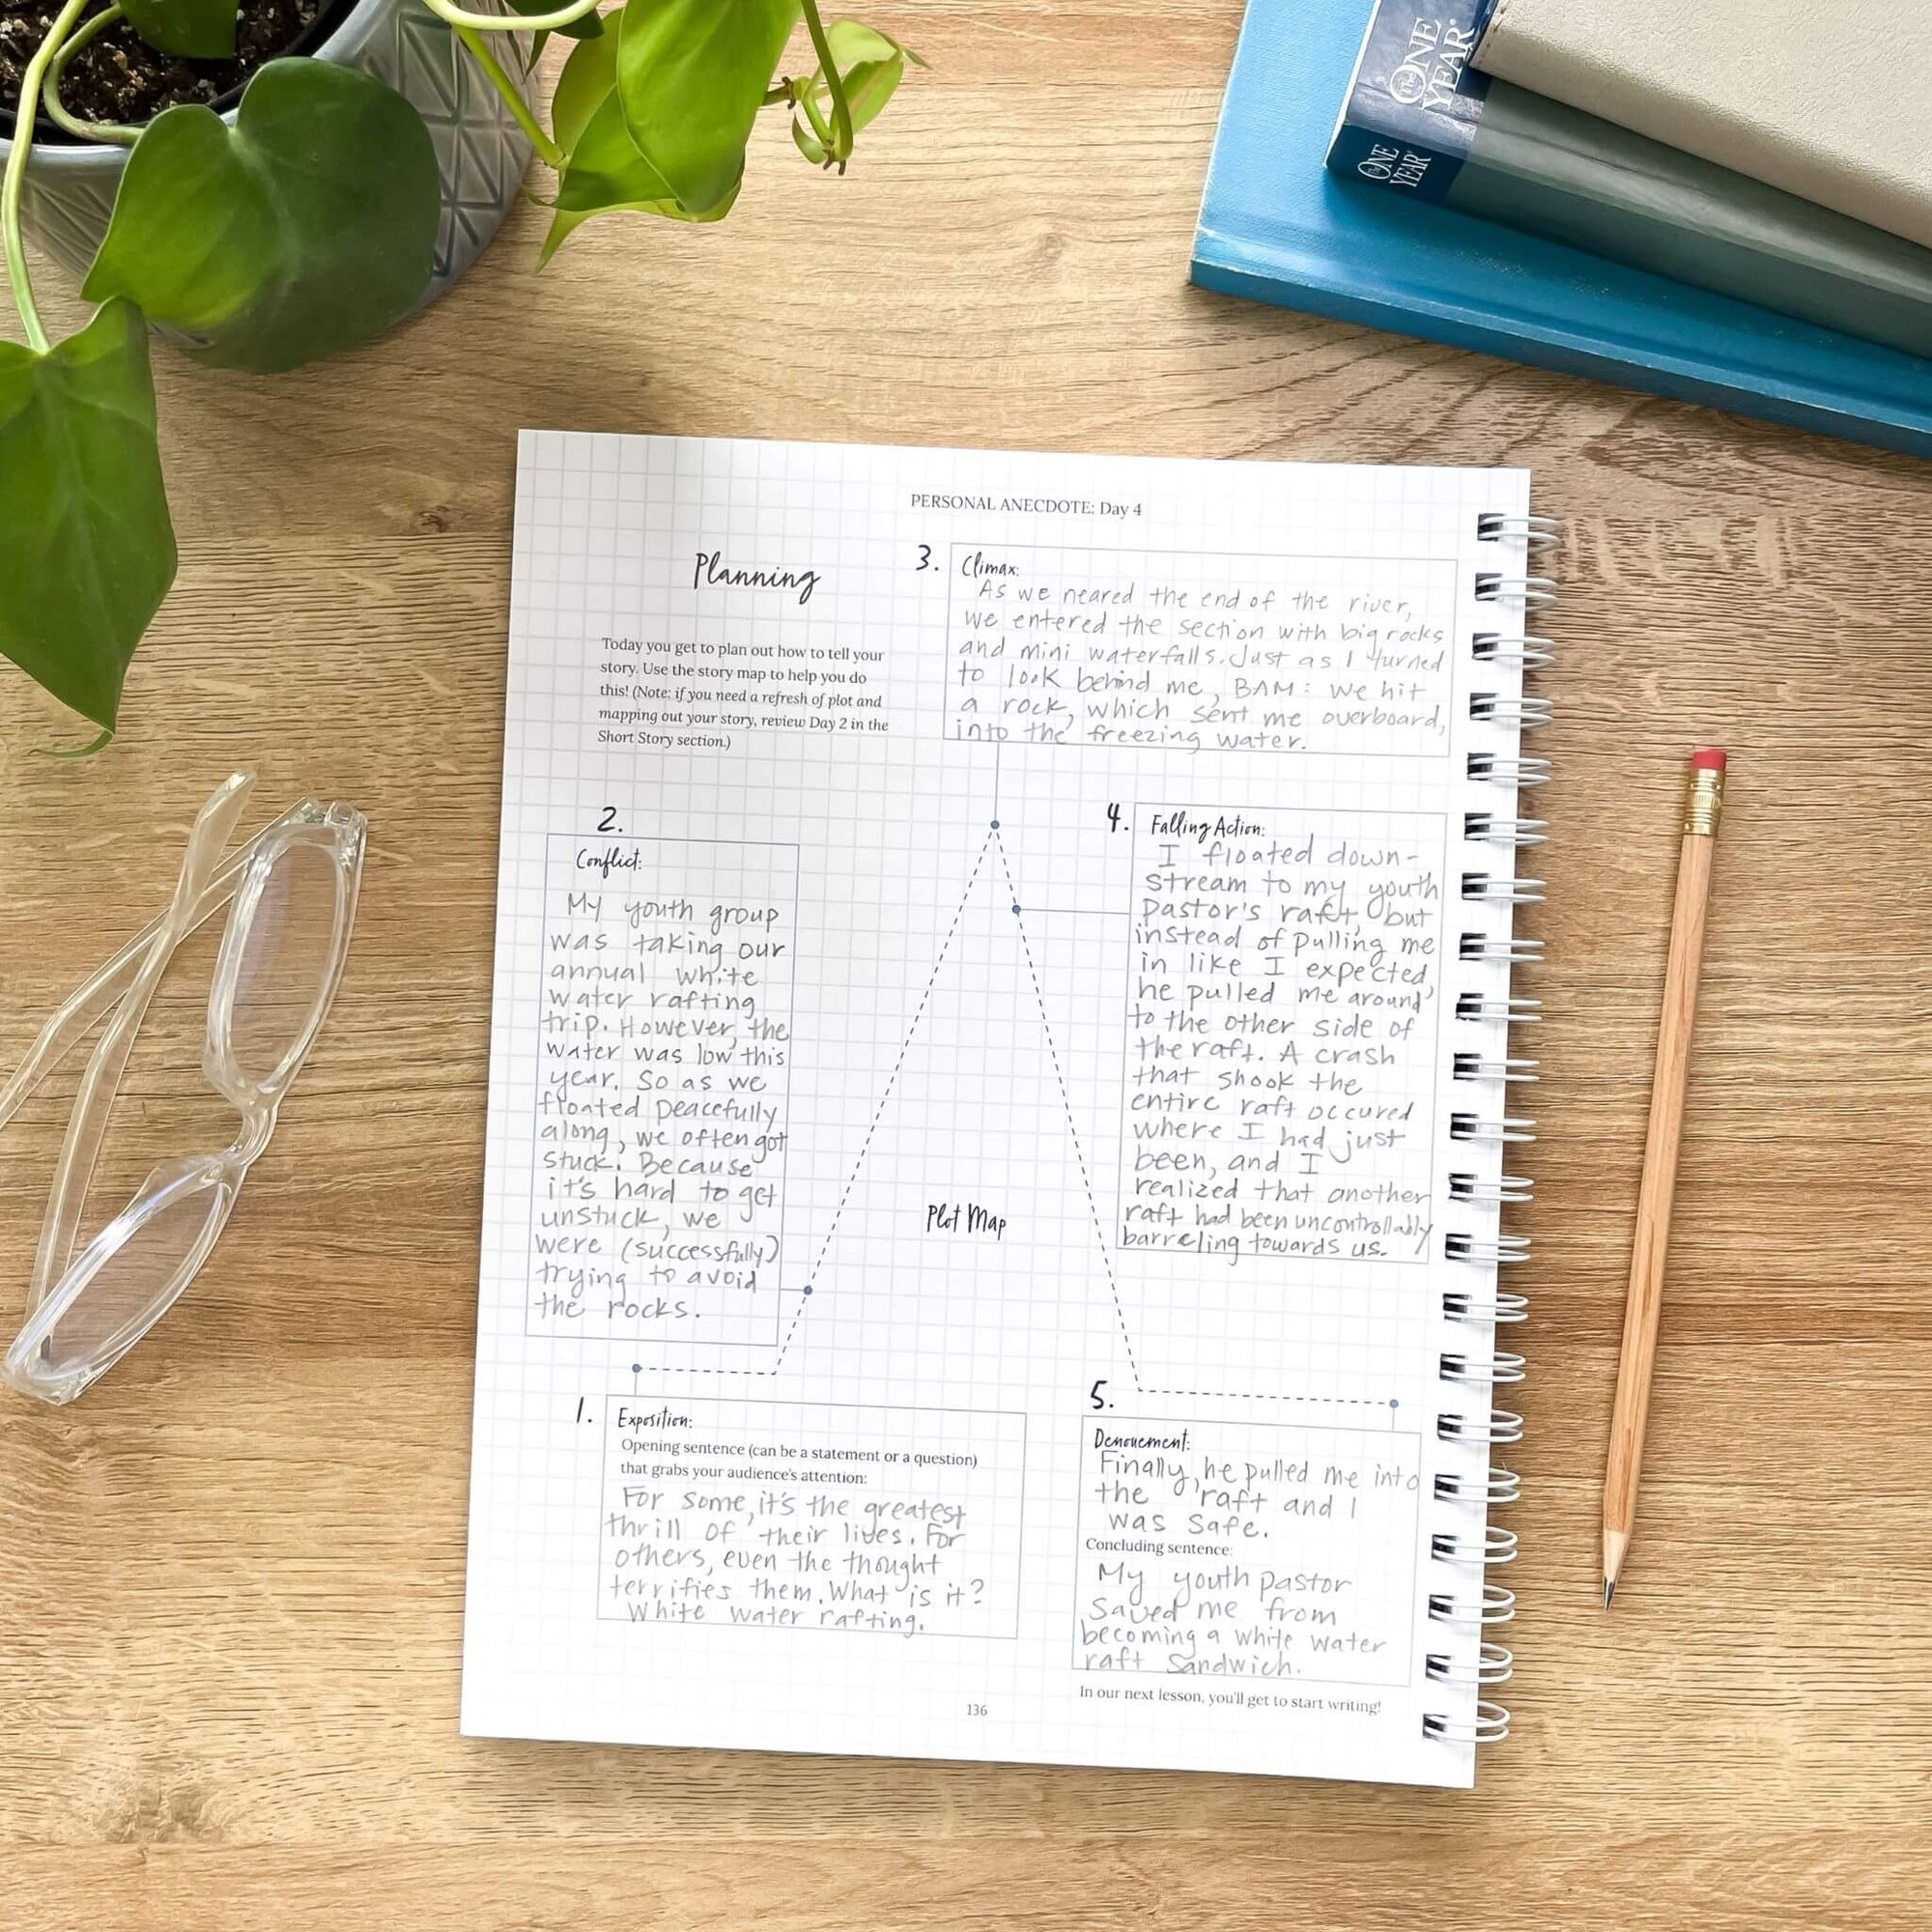 The ONE
YEAR®
The ONE
YEAR®
PERSONAL ANECDOTE: Day 4
Planning
Today you get to plan out how to tell your
story. Use the story map to help you do
this! (Note: if you need a refresh of plot and
mapping out your story, review Day 2 in the
Short Story section.)
3.
Climax:
As we neared the end of the river,
we entered the section with big rocks
and mini waterfalls. Just as I turned
to look behind me, BAM: we hit
a rock, which sent me overboard,
into the freezing water.
2.
Conflict:
My youth group
was taking our
annual white
water rafting
trip. However, the
water was low this
year. So as we
floated peacefully
along, we often got
stuck. Because
it's hard to get
unstuck, we
were (successfully)
trying to avoid
the rocks.
4.
Falling Action:
I floated down-
stream to my youth
pastor's raft, but
instead of pulling me
in like I expected,
he pulled me around
to the other side of
the raft. A crash
that shook the
entire raft occured
where I had just
been, and I
realized that another
raft had been uncontrollably
barreling towards us.
Plot Map
1.
Exposition:
Opening sentence (can be a statement or a question)
that grabs your audience's attention:
For some, it's the greatest
thrill of their lives. For
others, even the thought
terrifies them. What is it?
White water rafting.
5.
Denouement:
Finally, he pulled me into
the raft and I
was safe.
Concluding sentence:
My youth pastor
saved me from
becoming a white water
raft sandwich.
In our next lesson, you'll get to start writing!
136